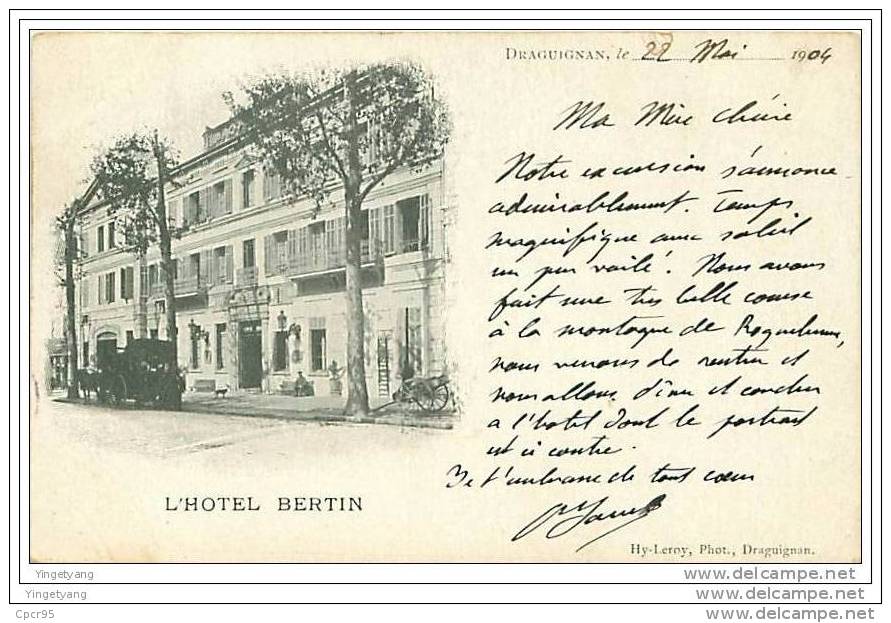 DRAGUIGNAN, le 22 Mai 1904
Ma Mère chérie
Notre excursion s'annonce
admirablement. Temps
magnifique avec soleil
un peu voilé. Nous avons
fait une très belle course
à la montagne de Roquebrune,
nous venons de rentrer et
nous allons dîner et coucher
à l'hotel dont le portrait
est ci contre.
Je t'embrasse de tout cœur
L'HOTEL BERTIN
Hy-Leroy, Phot., Draguignan.
Yingetyang
Yingetyang
Cpcr95
www.delcampe.net
www.delcampe.net
www.delcampe.net